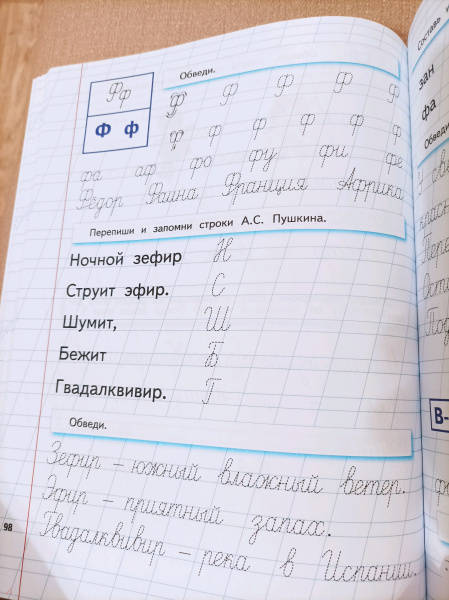 Фф
Ф ф
Обведи.
Ф Ф Ф Ф Ф
ф ф ф ф ф ф
фа аф фо фу фи фе
Фёдор Фаина Франция Африка
Перепиши и запомни строки А.С. Пушкина.
Ночной зефир Н
Струит эфир. С
Шумит, Ш
Бежит Б
Гвадалквивир. Г
Обведи.
Зефир – южный влажный ветер.
Эфир – приятный запах.
Гвадалквивир – река в Испании.
98
Составь
зан
фа
Обведи
В-